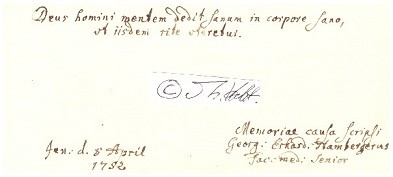 Deus homini mentem dedit sanam in corpore sano,
ut iisdem rite uteretur.
©
Jen: d. 8 Avril
1752
Memoriae causa scripsi
Georg: Erhard: Hambergerus
fac: med: Senior